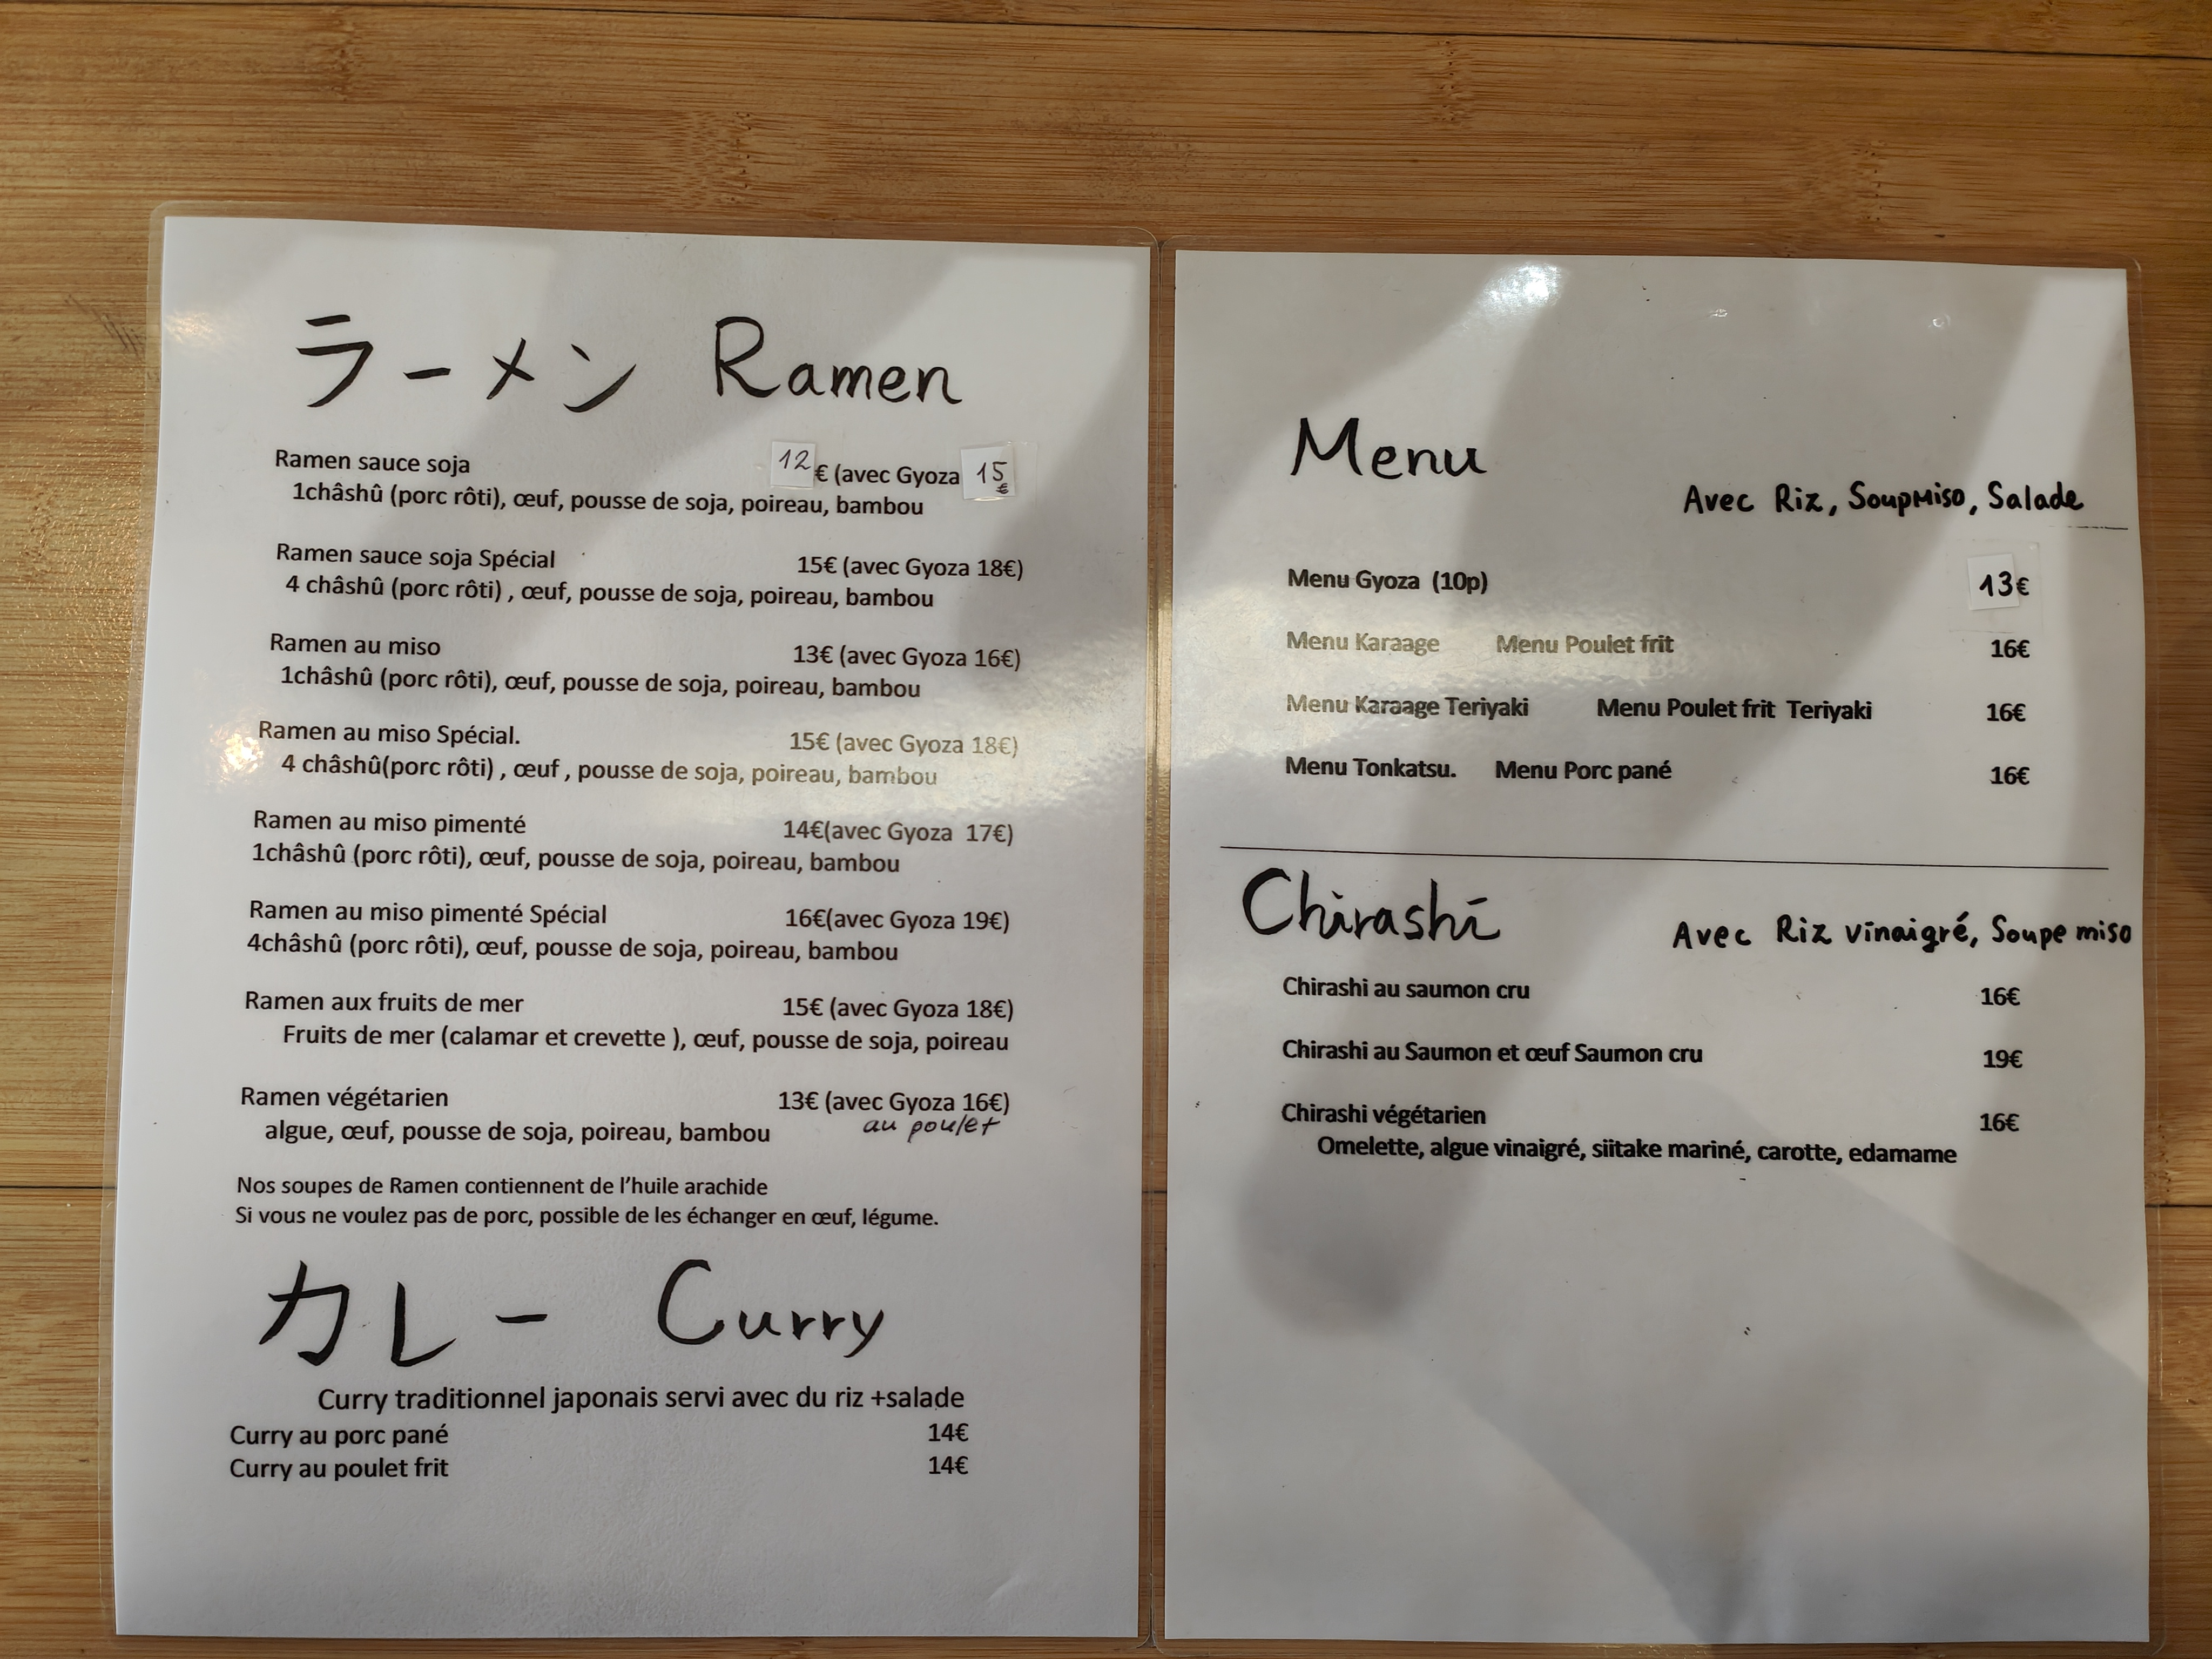 ラーメン Ramen
Ramen sauce soja 12€ (avec Gyoza 15€
1châshû (porc rôti), œuf, pousse de soja, poireau, bambou
Ramen sauce soja Spécial 15€ (avec Gyoza 18€)
4 châshû (porc rôti) , œuf, pousse de soja, poireau, bambou
Ramen au miso 13€ (avec Gyoza 16€)
1châshû (porc rôti), œuf, pousse de soja, poireau, bambou
Ramen au miso Spécial. 15€ (avec Gyoza 18€)
4 châshû(porc rôti) , œuf , pousse de soja, poireau, bambou
Ramen au miso pimenté 14€(avec Gyoza 17€)
1châshû (porc rôti), œuf, pousse de soja, poireau, bambou
Ramen au miso pimenté Spécial 16€(avec Gyoza 19€)
4châshû (porc rôti), œuf, pousse de soja, poireau, bambou
Ramen aux fruits de mer 15€ (avec Gyoza 18€)
Fruits de mer (calamar et crevette ), œuf, pousse de soja, poireau
Ramen végétarien 13€ (avec Gyoza 16€)
au poulet
algue, œuf, pousse de soja, poireau, bambou
Nos soupes de Ramen contiennent de l'huile arachide
Si vous ne voulez pas de porc, possible de les échanger en œuf, légume.
カレー Curry
Curry traditionnel japonais servi avec du riz +salade
Curry au porc pané 14€
Curry au poulet frit 14€
Menu
Avec Riz, SoupMiso, Salade
Menu Gyoza (10p) 13€
Menu Karaage Menu Poulet frit 16€
Menu Karaage Teriyaki Menu Poulet frit Teriyaki 16€
Menu Tonkatsu. Menu Porc pané 16€
Chirashi
Avec Riz vinaigré, Soupe miso
Chirashi au saumon cru 16€
Chirashi au Saumon et œuf Saumon cru 19€
Chirashi végétarien 16€
Omelette, algue vinaigré, siitake mariné, carotte, edamame